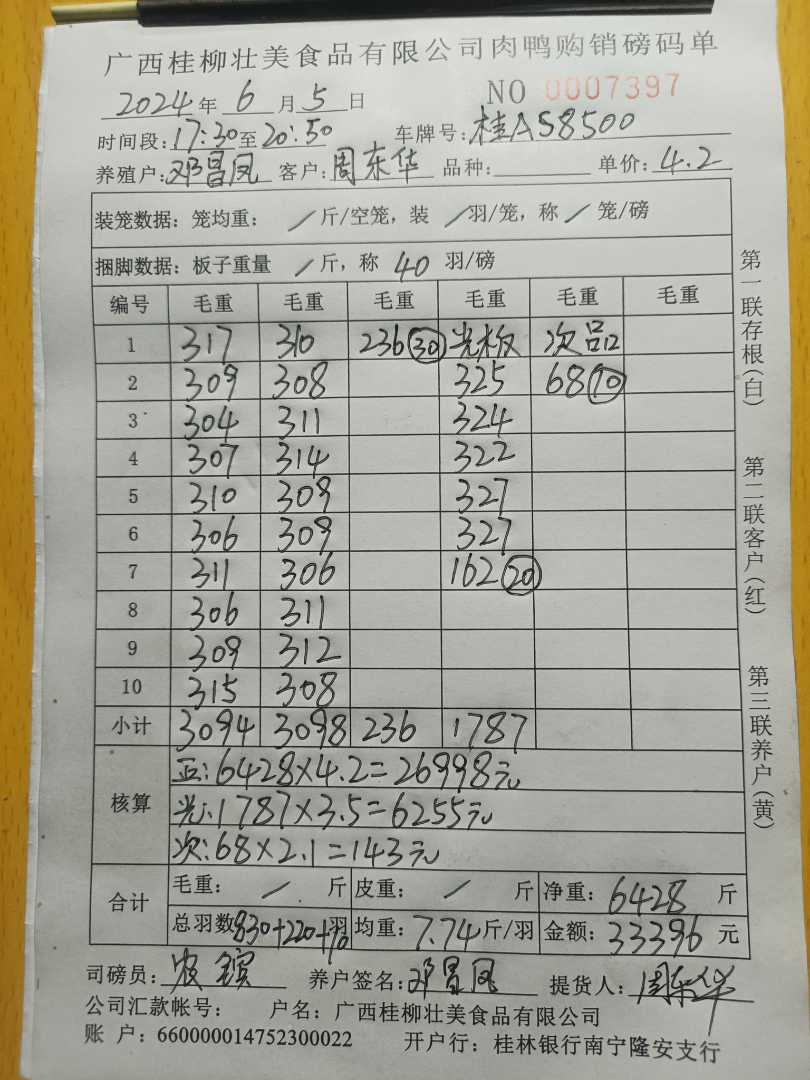 广西桂柳壮美食品有限公司肉鸭购销磅码单
2024年6月5日 NO 0007397
时间段:17:30至20:50 车牌号:桂A58500
养殖户:邓昌凤 客户:周东华 品种: 单价:4.2
装笼数据: 笼均重: / 斤/空笼, 装 / 羽/笼, 称 / 笼/磅
捆脚数据: 板子重量 / 斤, 称 40 羽/磅
编号 毛重 毛重 毛重 毛重 毛重 毛重
1 317 310 236(30) 光板 次品12
2 309 308 325 68(10)
3 304 311 324
4 307 314 322
5 310 309 327
6 306 309 327
7 311 306 162(20)
8 306 311
9 309 312
10 315 308
小计 3094 3098 236 1787
核算
正:6428×4.2=26998元
光:1787×3.5=6255元
次:68×2.1=143元
合计
毛重: / 斤 皮重: / 斤 净重: 6428 斤
总羽数830+220+10羽 均重:7.74斤/羽 金额:33396元
司磅员: 养户签名:邓昌凤 提货人:周东华
公司汇款帐号: 户名:广西桂柳壮美食品有限公司
账 户:660000014752300022 开户行:桂林银行南宁隆安支行
第一联存根(白) 第二联客户(红) 第三联养户(黄)